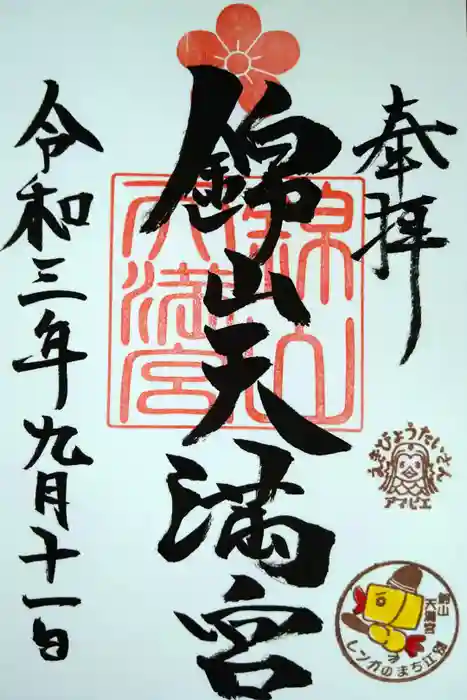 奉拝
錦山天満宮
錦山天満宮
令和三年九月十一日
えきびょうたいさん
アマビエ
錦山天満宮
レンガのまち江別